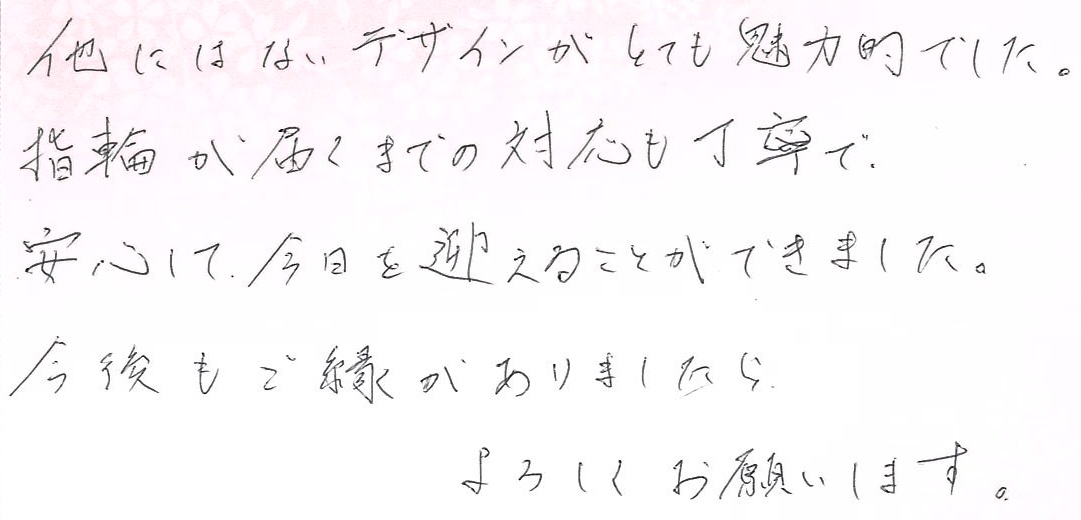 他にはないデザインがとても魅力的でした。
指輪が届くまでの対応も丁寧で、
安心して、今日を迎えることができました。
今後もご縁がありましたら、
よろしくお願いします。